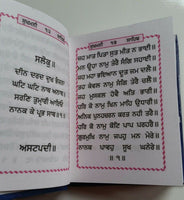 ਸੁਖਮਨੀ ੧੩ ਸਾਹਿਬ
ਸਲੋਕੁ ॥
ਦੀਨ ਦਰਦ ਦੁਖ ਭੰਜਨਾ
ਘਟਿ ਘਟਿ ਨਾਥ ਅਨਾਥ ॥
ਸਰਣਿ ਤੁਮ੍ਹਾਰੀ ਆਇਓ
ਨਾਨਕ ਕੇ ਪ੍ਰਭ ਸਾਥ ॥੧॥
ਅਸਟਪਦੀ ॥
ਸੁਖਮਨੀ ੧੩ ਸਾਹਿਬ
ਜਹ ਮਾਤ ਪਿਤਾ ਸੁਤ ਮੀਤ ਨ ਭਾਈ ॥
ਮਨ ਊਹਾ ਨਾਮੁ ਤੇਰੈ ਸੰਗਿ ਸਹਾਈ ॥
ਜਹ ਮਹਾ ਭਇਆਨ ਦੂਤ ਜਮ ਦਲੈ ॥
ਤਹ ਕੇਵਲ ਨਾਮੁ ਸੰਗਿ ਤੇਰੈ ਚਲੈ ॥
ਜਹ ਮੁਸਕਲ ਹੋਵੈ ਅਤਿ ਭਾਰੀ ॥
ਹਰਿ ਕੋ ਨਾਮੁ ਖਿਨ ਮਾਹਿ ਉਧਾਰੀ ॥
ਹਰਿ ਕੋ ਨਾਮੁ ਕੋਟਿ ਪਾਪ ਪਰਹਰੈ ॥
ਗੁਰਮੁਖਿ ਨਾਮੁ ਜਪਹੁ ਮਨ ਮੇਰੇ ॥
ਨਾਨਕ ਪਾਵਹੁ ਸੂਖ ਘਨੇਰੇ ॥
॥੧॥